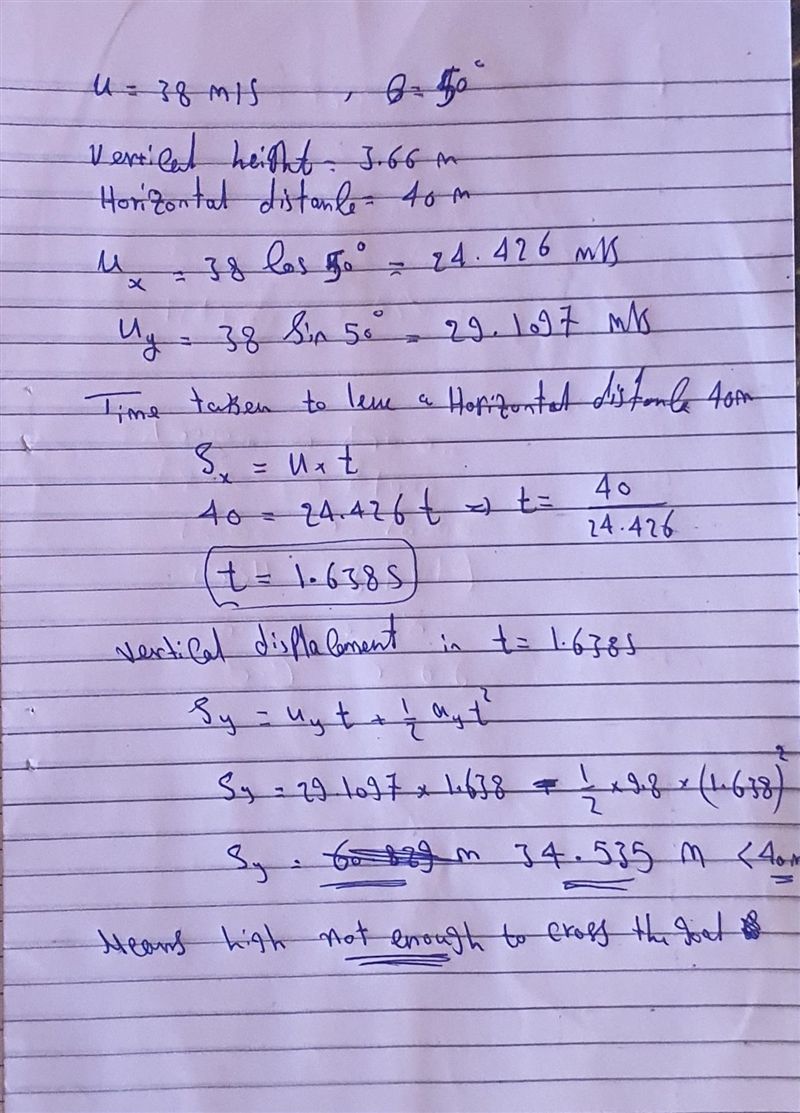 u = 38 m/s , θ = 50°
Vertical height = 3.66 m
Horizontal distance = 40 m
u_x = 38 cos 50° = 24.426 m/s
u_y = 38 sin 50° = 29.1097 m/s
Time taken to a Horizontal distance 40m
S_x = u_x t
40 = 24.426 t ⇒ t = 40/24.426
t = 1.638 s
vertical displacement in t = 1.638 s
S_y = u_y t + 1/2 a_y t²
S_y = 29.1097 × 1.638 - 1/2 × 9.8 × (1.638)²
S_y = m 34.535 m < 40 m
Means high not enough to cross the goal